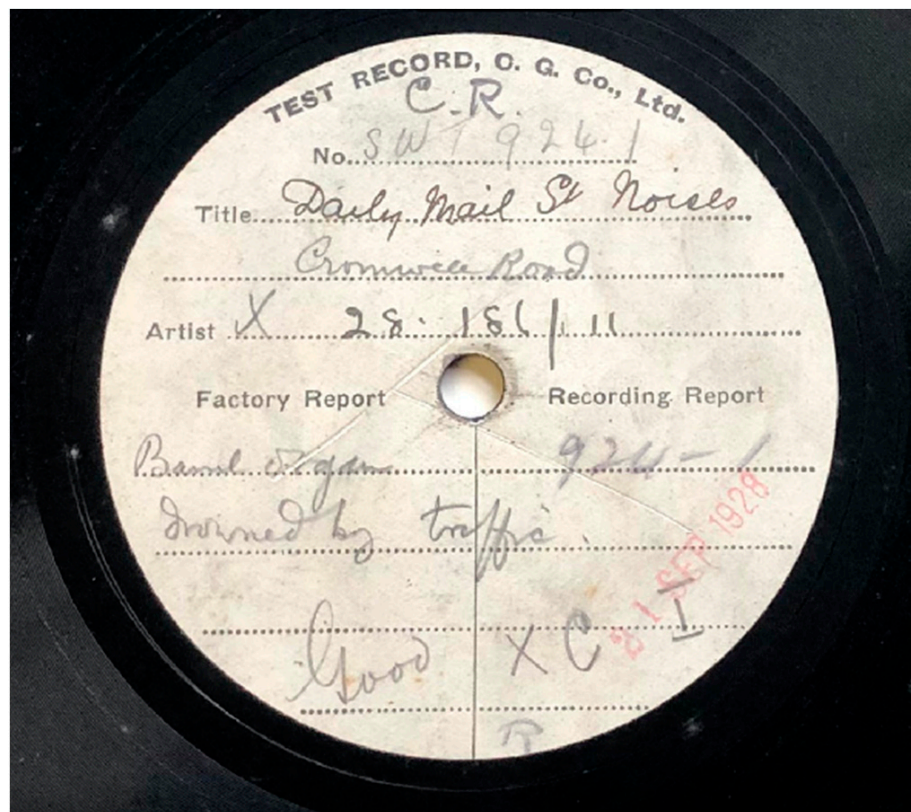 TEST RECORD, C. G. Co., Ltd.
C.R.
No. SWT 924.1
Title Daily Mail St Noises
Cromwell Road
Artist X 28. 186/11
Factory Report Recording Report
Barrel organ 924-1
drowned by traffic.
21 SEP 1928
Good X C I
R